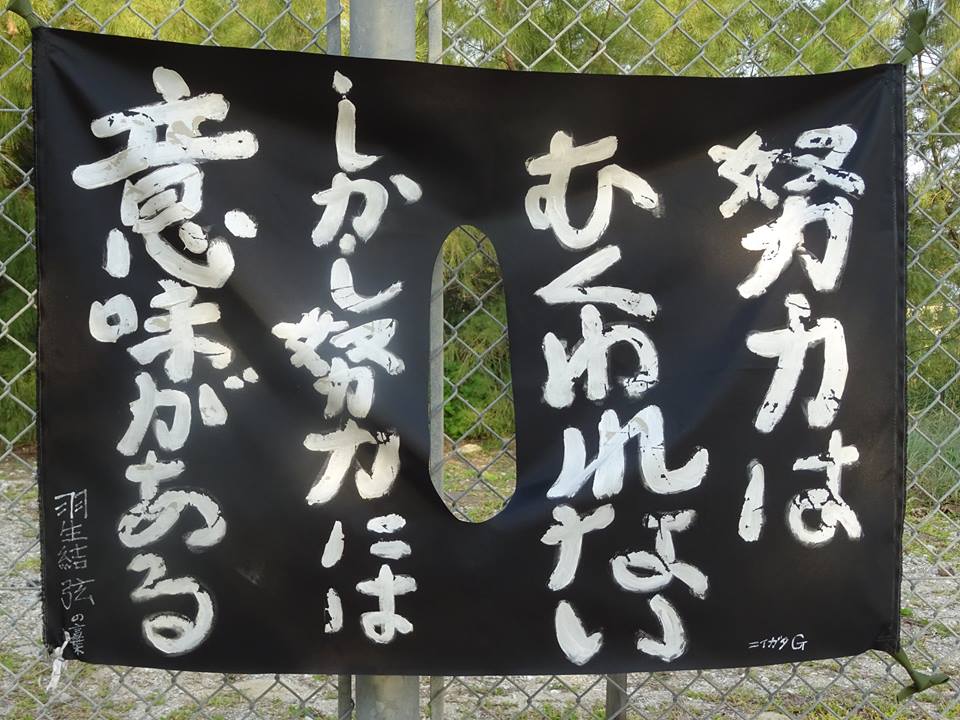 努力は
むくわれない
しかし努力には
意味がある
羽生結弦の言葉
ニイガタG